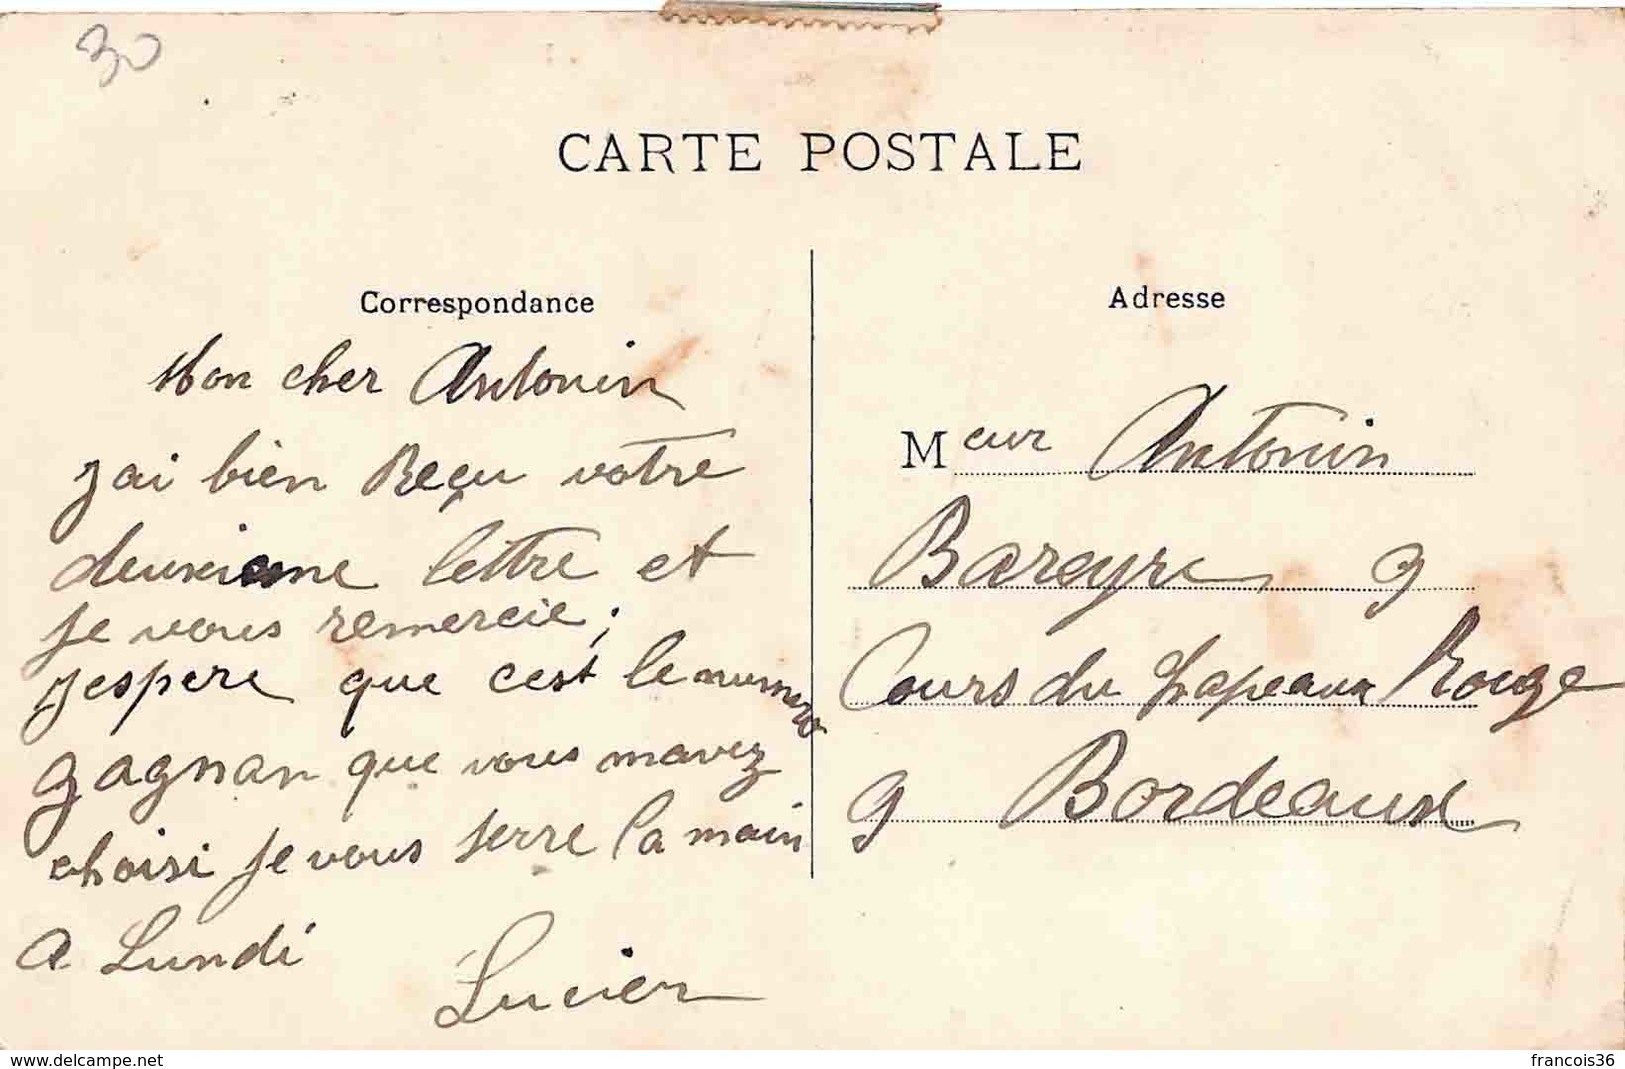 30
CARTE POSTALE
Correspondance
Mon cher Antonin
jai bien Reçu votre
deuxieme lettre et
je vous remercie ;
jespere que cest le numero
gagnan que vous mavez
choisi je vous serre la main
a Lundi
Lucien
Adresse
Meur Antonin
Bareyre 9
Cours du Chapeaux Rouge
9 Bordeaux
www.delcampe.net
francois36